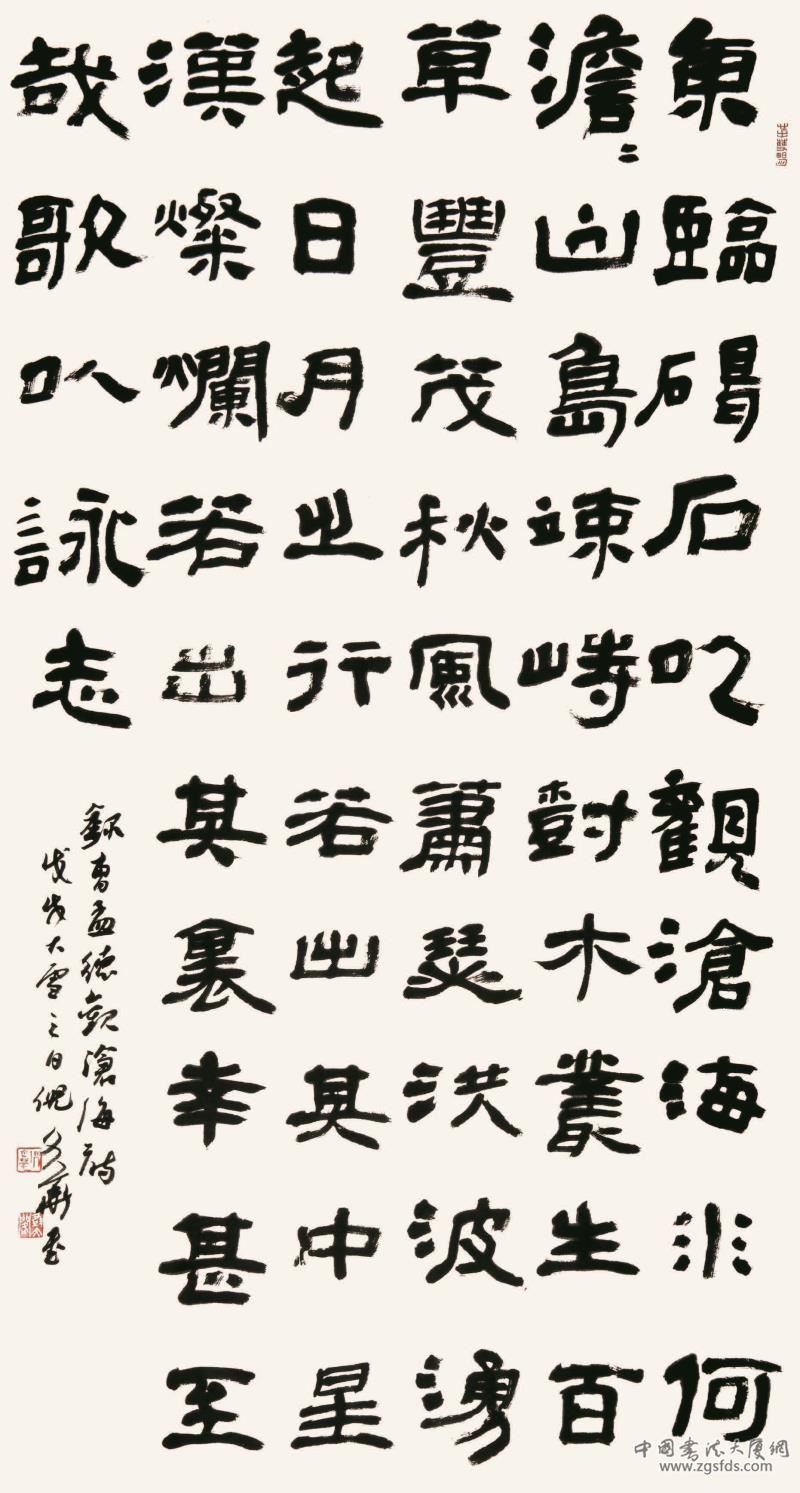 東臨碣石以觀滄海水何
澹〻山島竦峙樹木叢生百
草豐茂秋風蕭瑟洪波湧
起日月之行若出其中星
漢燦爛若出其裏幸甚至
哉歌以詠志
錄曹孟德觀滄海詩
戊戌大雪之日倪文華書
中國書法大廈網
www.zgsfds.com